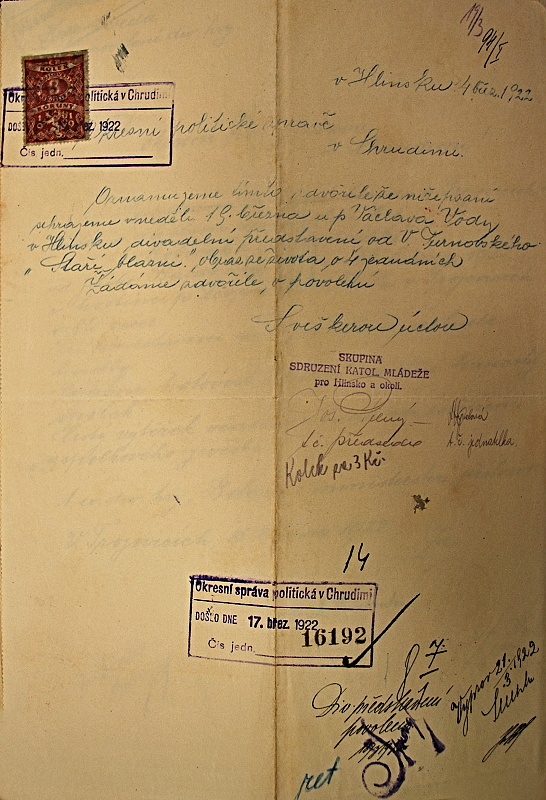 19/3
v Hlinsku 4 břez. 1922
KOLEK
3
Okresní politická v Chrudimi
DOŠLO břez. 1922
Čís. jedn.
Okresní politické správě
v Chrudimi.
Oznamujeme tímto, zdvořile, že níže psaní
sehrajeme v neděli 19. března u pº Václava Vody
v Hlinsku, divadelní představení od V.
"Staří blázni", obraz ze života, o 4 jednáních
Žádáme zdvořile, o povolení
S veškerou úctou
SKUPINA
SDRUZENÍ KATOL MLÁDEŽE
pro Hlinsko a okolí.
Jos.
t. č. předseda t. č. jednatelka.
Kolek za 3 Kč.
14
Okresní správa politická v Chrudimi
DOŠLO DNE 17. břez. 1922
Čís. jedn. 16192
Div. představení
povoleno
21. 3. 1922
ret